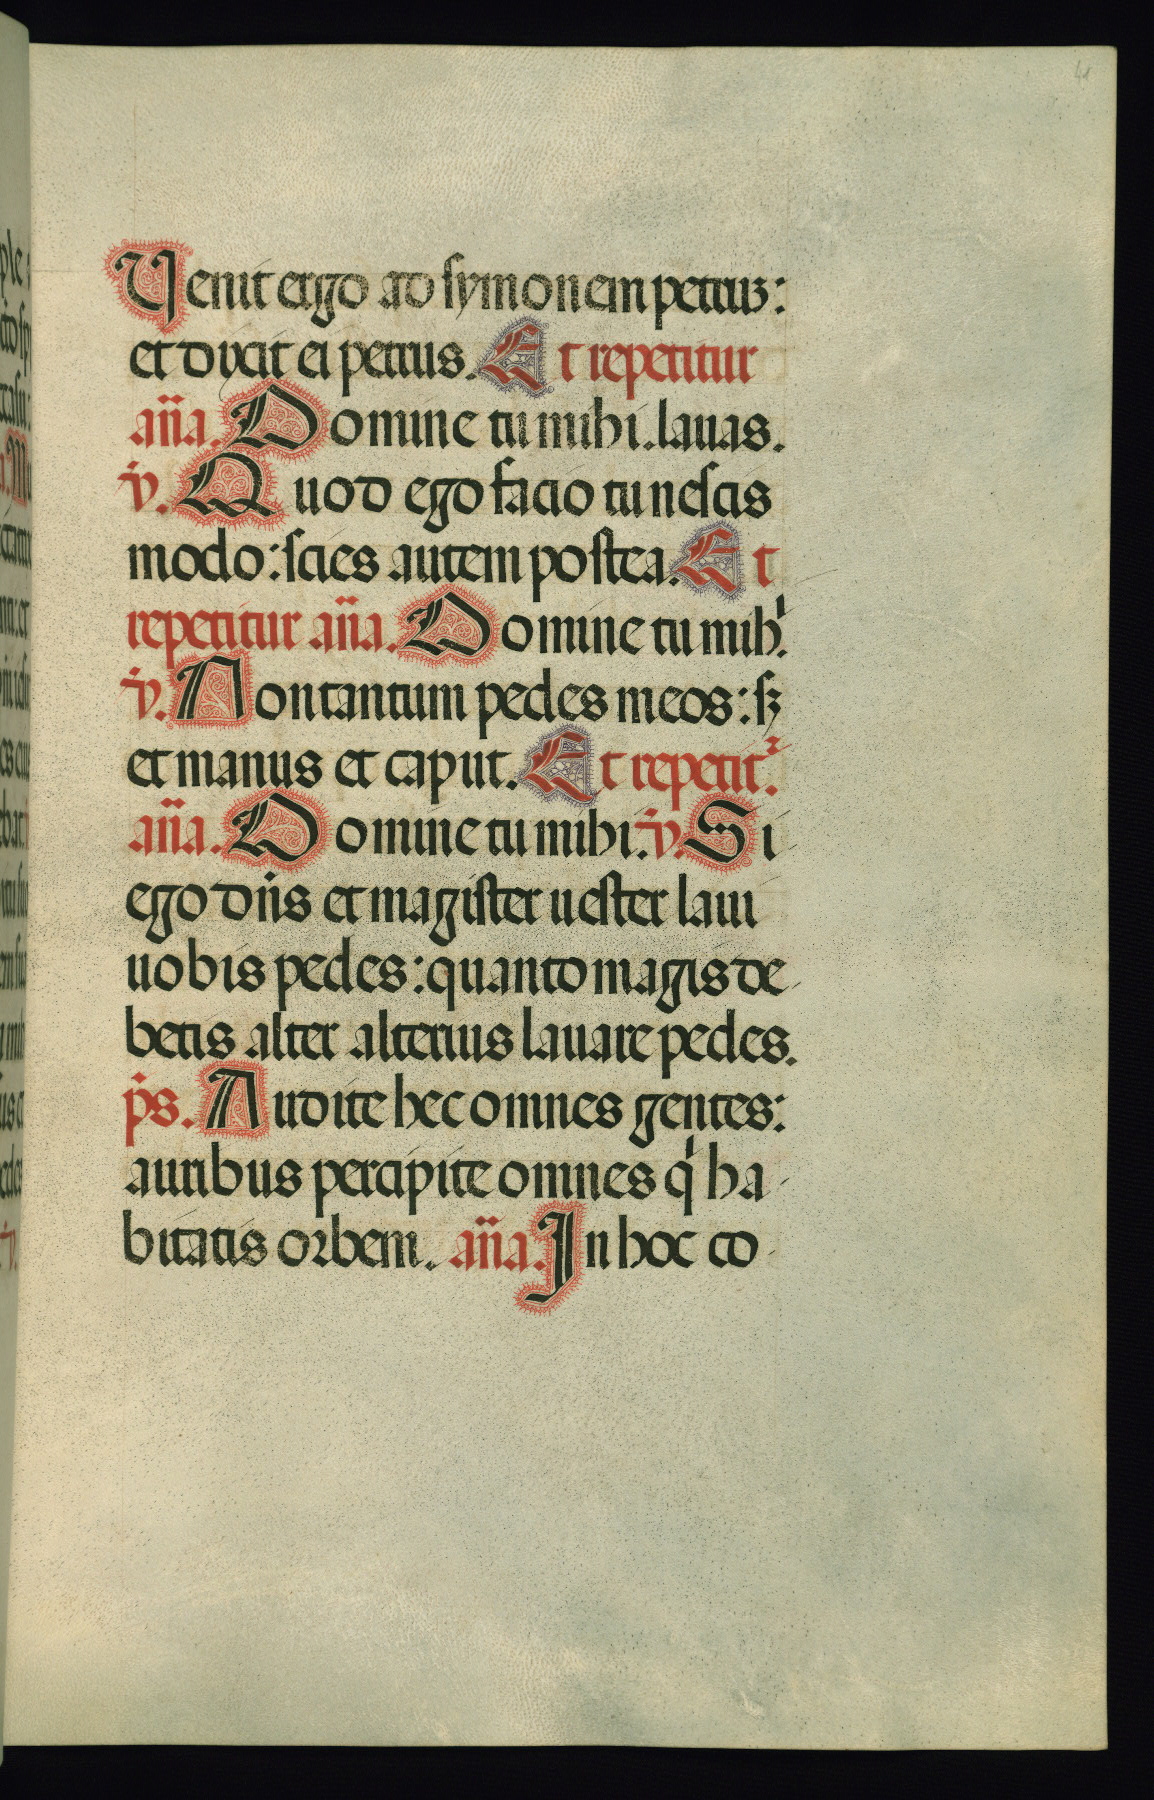 41
Venit ergo ad symonem petruz:
et dixit ei petrus. Et repetitur
an̄a. Domine tu mihi. lauas.
v̄. Quod ego facio tu nescis
modo: scies autem postea. Et
repetitur an̄a. Domine tu mihͥ.
v̄. Non tantum pedes meos: sꝫ
et manus et caput. Et repetit᷑.
an̄a. Domine tu mihi. v̄. Si
ego dn̄s et magister uester laui
uobis pedes: quanto magis de
betis alter alterius lauare pedes.
p̄s. Audite hec omnes gentes:
auribus percipite omnes qͥ ha
bitatis orbem. an̄a. In hoc co